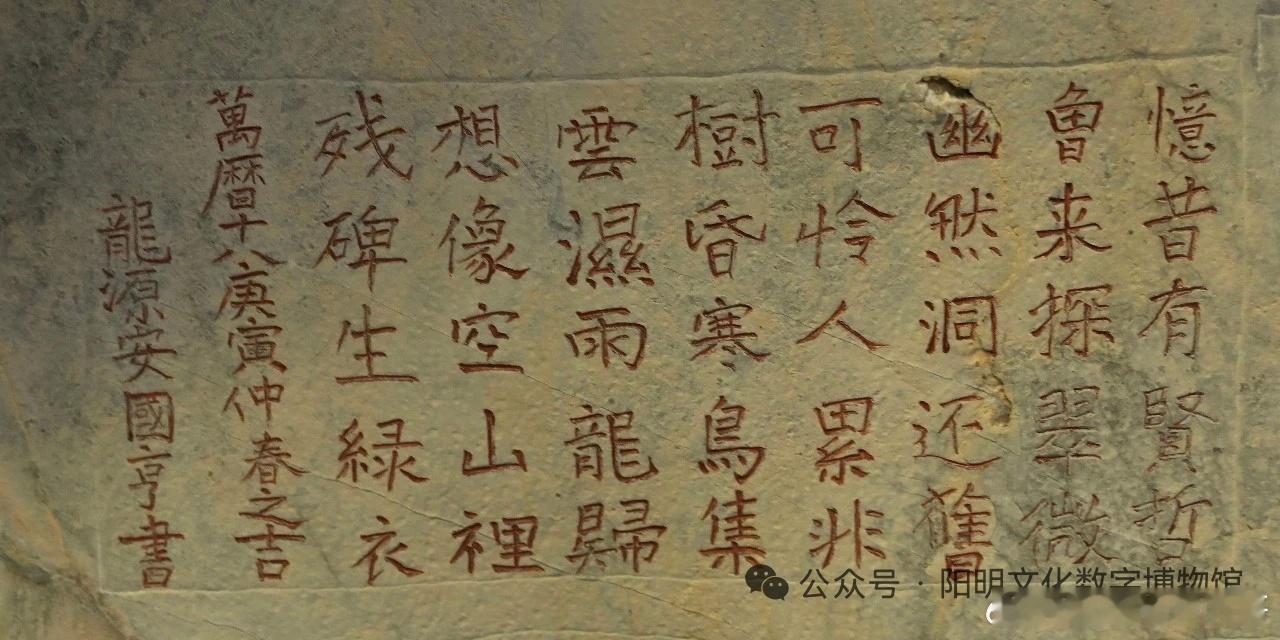 憶昔有賢哲
曾来探翠微
幽然洞还舊
可怜人累非
樹昏寒鳥集
雲濕雨龍歸
想像空山裡
残碑生緑衣
萬曆十八庚寅仲春之吉
龍源安國亨書
公众号 · 阳明文化数字博物馆